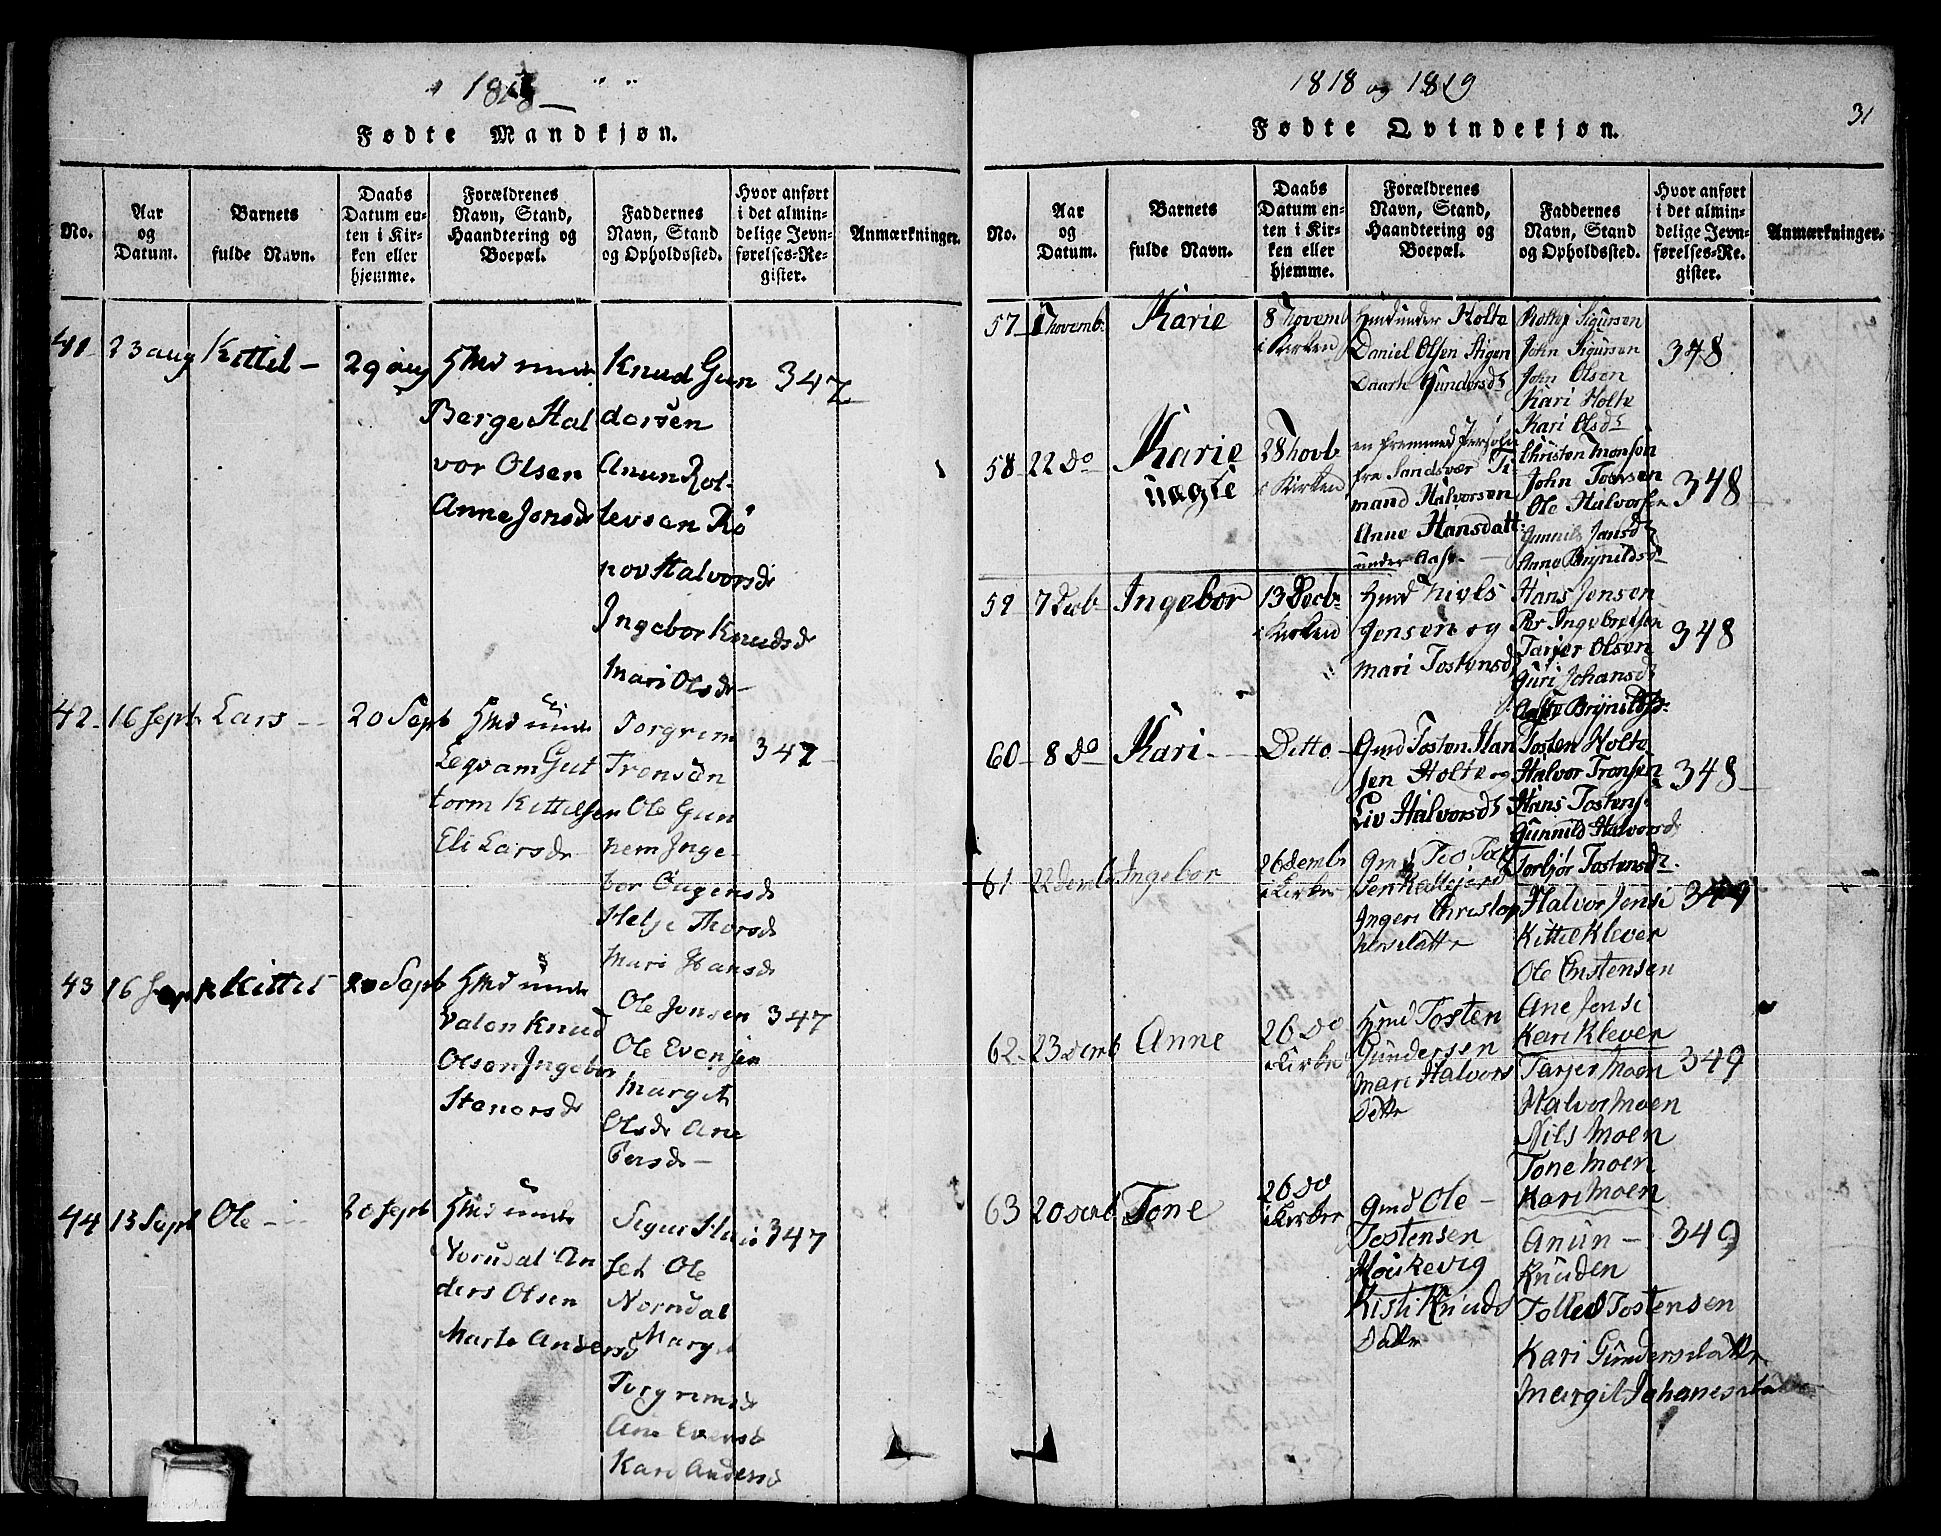 1818
Fødte Mandkjøn.
No.
Aar
og
Datum.
Barnets
fulde Navn.
Daabs
Datum en-
ten i Kir-
ken eller
hjemme.
Forældrenes
Navn, Stand,
Haandtering og
Boepæl.
Faddernes
Navn, Stand
og Opholdssted.
Hvor anført
i det almin-
delige Jevn-
førelses-Re-
gister.
Anmærkninger.
41 23 aug Kittel
29 aug
Berge Hal
vor Olsen
Anne Jonsd
Knud Gun
dersen
Anun Rol-
levsen Rö
nov Halvorsd
Ingebor Knudsd
Mari Olsd
347
42 16 Sept Lars
20 Sept
Leqvam Gut
torm Kittelsen
Eli Larsd
Torgrim
Tronsen
Ole Gun
hem Inge-
bor
Helje Thorsd
Mari Hansd
347
43 16 Sept Kittel
20 Sept
Valen Knud
Olsen Ingebor
Stenersd
Ole Jonsen
Ole Evensen
Margit
Olsd Ane
Persd
347
44 13 Sept Ole
20 Sept
Norudal An
ders Olsen
Marte Andersd
Sigur
set Ole
Norudal
Marget
Torgrimsd
Ane Evensd
Kari Andersd
347
1818 og 1819
31
Fødte Qvindekjøn.
No.
Aar
og
Datum.
Barnets
fulde Navn.
Daabs
Datum en-
ten i Kir-
ken eller
hjemme.
Forældrenes
Navn, Stand,
Haandtering og
Boepæl.
Faddernes
Navn, Stand
og Opholdssted.
Hvor anført
i det almin-
delige Jevn-
førelses-Re-
gister.
Anmærkninger.
57 1 novemb. Karie
8 novemb
i Kirken
Hmd under Holte
Daniel Olsen Stigen
Gundersd
Sigursen
John Sigursen
John Olsen
Kari Holte
Kari Olsd
348
58 22 do Karie
uægte
28 novb
i Kirken
en fremmed Person
fra Sandsvær Ti
mand Halvorsen
Anne Hansdatt
under Aase
Christen Monsen
John Torsen
Ole Halvorsen
Gunnild Jansd
Anne Brynildsd
348
59 7 Decb Ingebor
13 Decb
i Kirken
Hmd Niels
Jensen og
Mari Tostensd
Hans Jensen
Per Ingebretsen
Tarjer Olsen
Guri Johansd
Aaste Brynildsd
348
60 8 do Kari
Ditto
Gmd Tosten Han
sen Holte og
Liv Halvorsd
Tosten Holte
Halvor Tronsen
Hans Tostens
Gunnild Halvorsd
Torbjør Tostensd
348
61 22 Decmb Ingebor
26 Decmb
i Kirken
Ingeri Christop
hersdatter
Halvor Jensi
Kittil Klever
Ole Enstensen
Ane Jensi
Kari Klever
349
62 23 Decmb Anne
26 do
i Kirken
Hmd Tosten
Gundersen
Mari Halvors
datter
Tarjer Moen
Halvor Moen
Nils Moen
Tone Moen
Kari Moen
349
63 20 Decmb Tone
26 do
i Kirken
Gmd Ole
Tostensen
Houkevig
Kisti Knuds
datter
Anun
Knuden
Tostensen
Kari Gundersdatter
Margit Johanesdatter
349